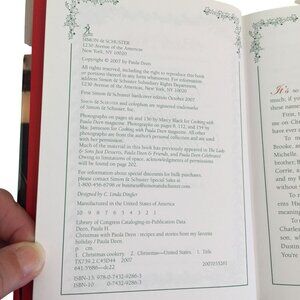 SIMON & SCHUSTER
1230 Avenue of the Americas
New York, NY 10020
Copyright © 2007 by Paula Deen
All rights reserved, including the right to reproduce this book
or portions thereof in any form whatsoever. For information
address Simon & Schuster Subsidiary Rights Department,
1230 Avenue of the Americas, New York, NY 10020
First Simon & Schuster hardcover edition October 2007
SIMON & SCHUSTER and colophon are registered trademarks
of Simon & Schuster, Inc.
Photographs on pages 66 and 130 by Marcy Black for Cooking with
Paula Deen magazine. Photographs on pages 8, 112, and 159 by
Mac Jamieson for Cooking with Paula Deen magazine. All other
photographs are from the author's personal collection and are used
with permission.
Much of the material in this book has previously appeared in The Lady
& Sons Just Desserts, Paula Deen & Friends, and Paula Deen Celebrates!
Owing to limitations of space, acknowledgments of permission
will be found on page 202.
For information about special discounts for bulk purchases,
please contact Simon & Schuster Special Sales at
1-800-456-6798 or business@simonandschuster.com.
Designed by C. Linda Dingler
Manufactured in the United States of America
10 9 8 7 6 5 4 3 2 1
Library of Congress Cataloging-in-Publication Data
Deen, Paula H.
Christmas with Paula Deen : recipes and stories from my favorite
holiday / Paula Deen.
p. cm.
1. Christmas cookery. 2. Christmas—United States. I. Title.
TX739.2.C45D44 2007
641.5'686—dc22
ISBN-13: 978-0-7432-9286-3
ISBN-10: 0-7432-9286-3
It's
First,
time, th
To
Brooke,
Michelle,
brother,
Corrie,
and my
find
An
Charles
of them
Dustin
You